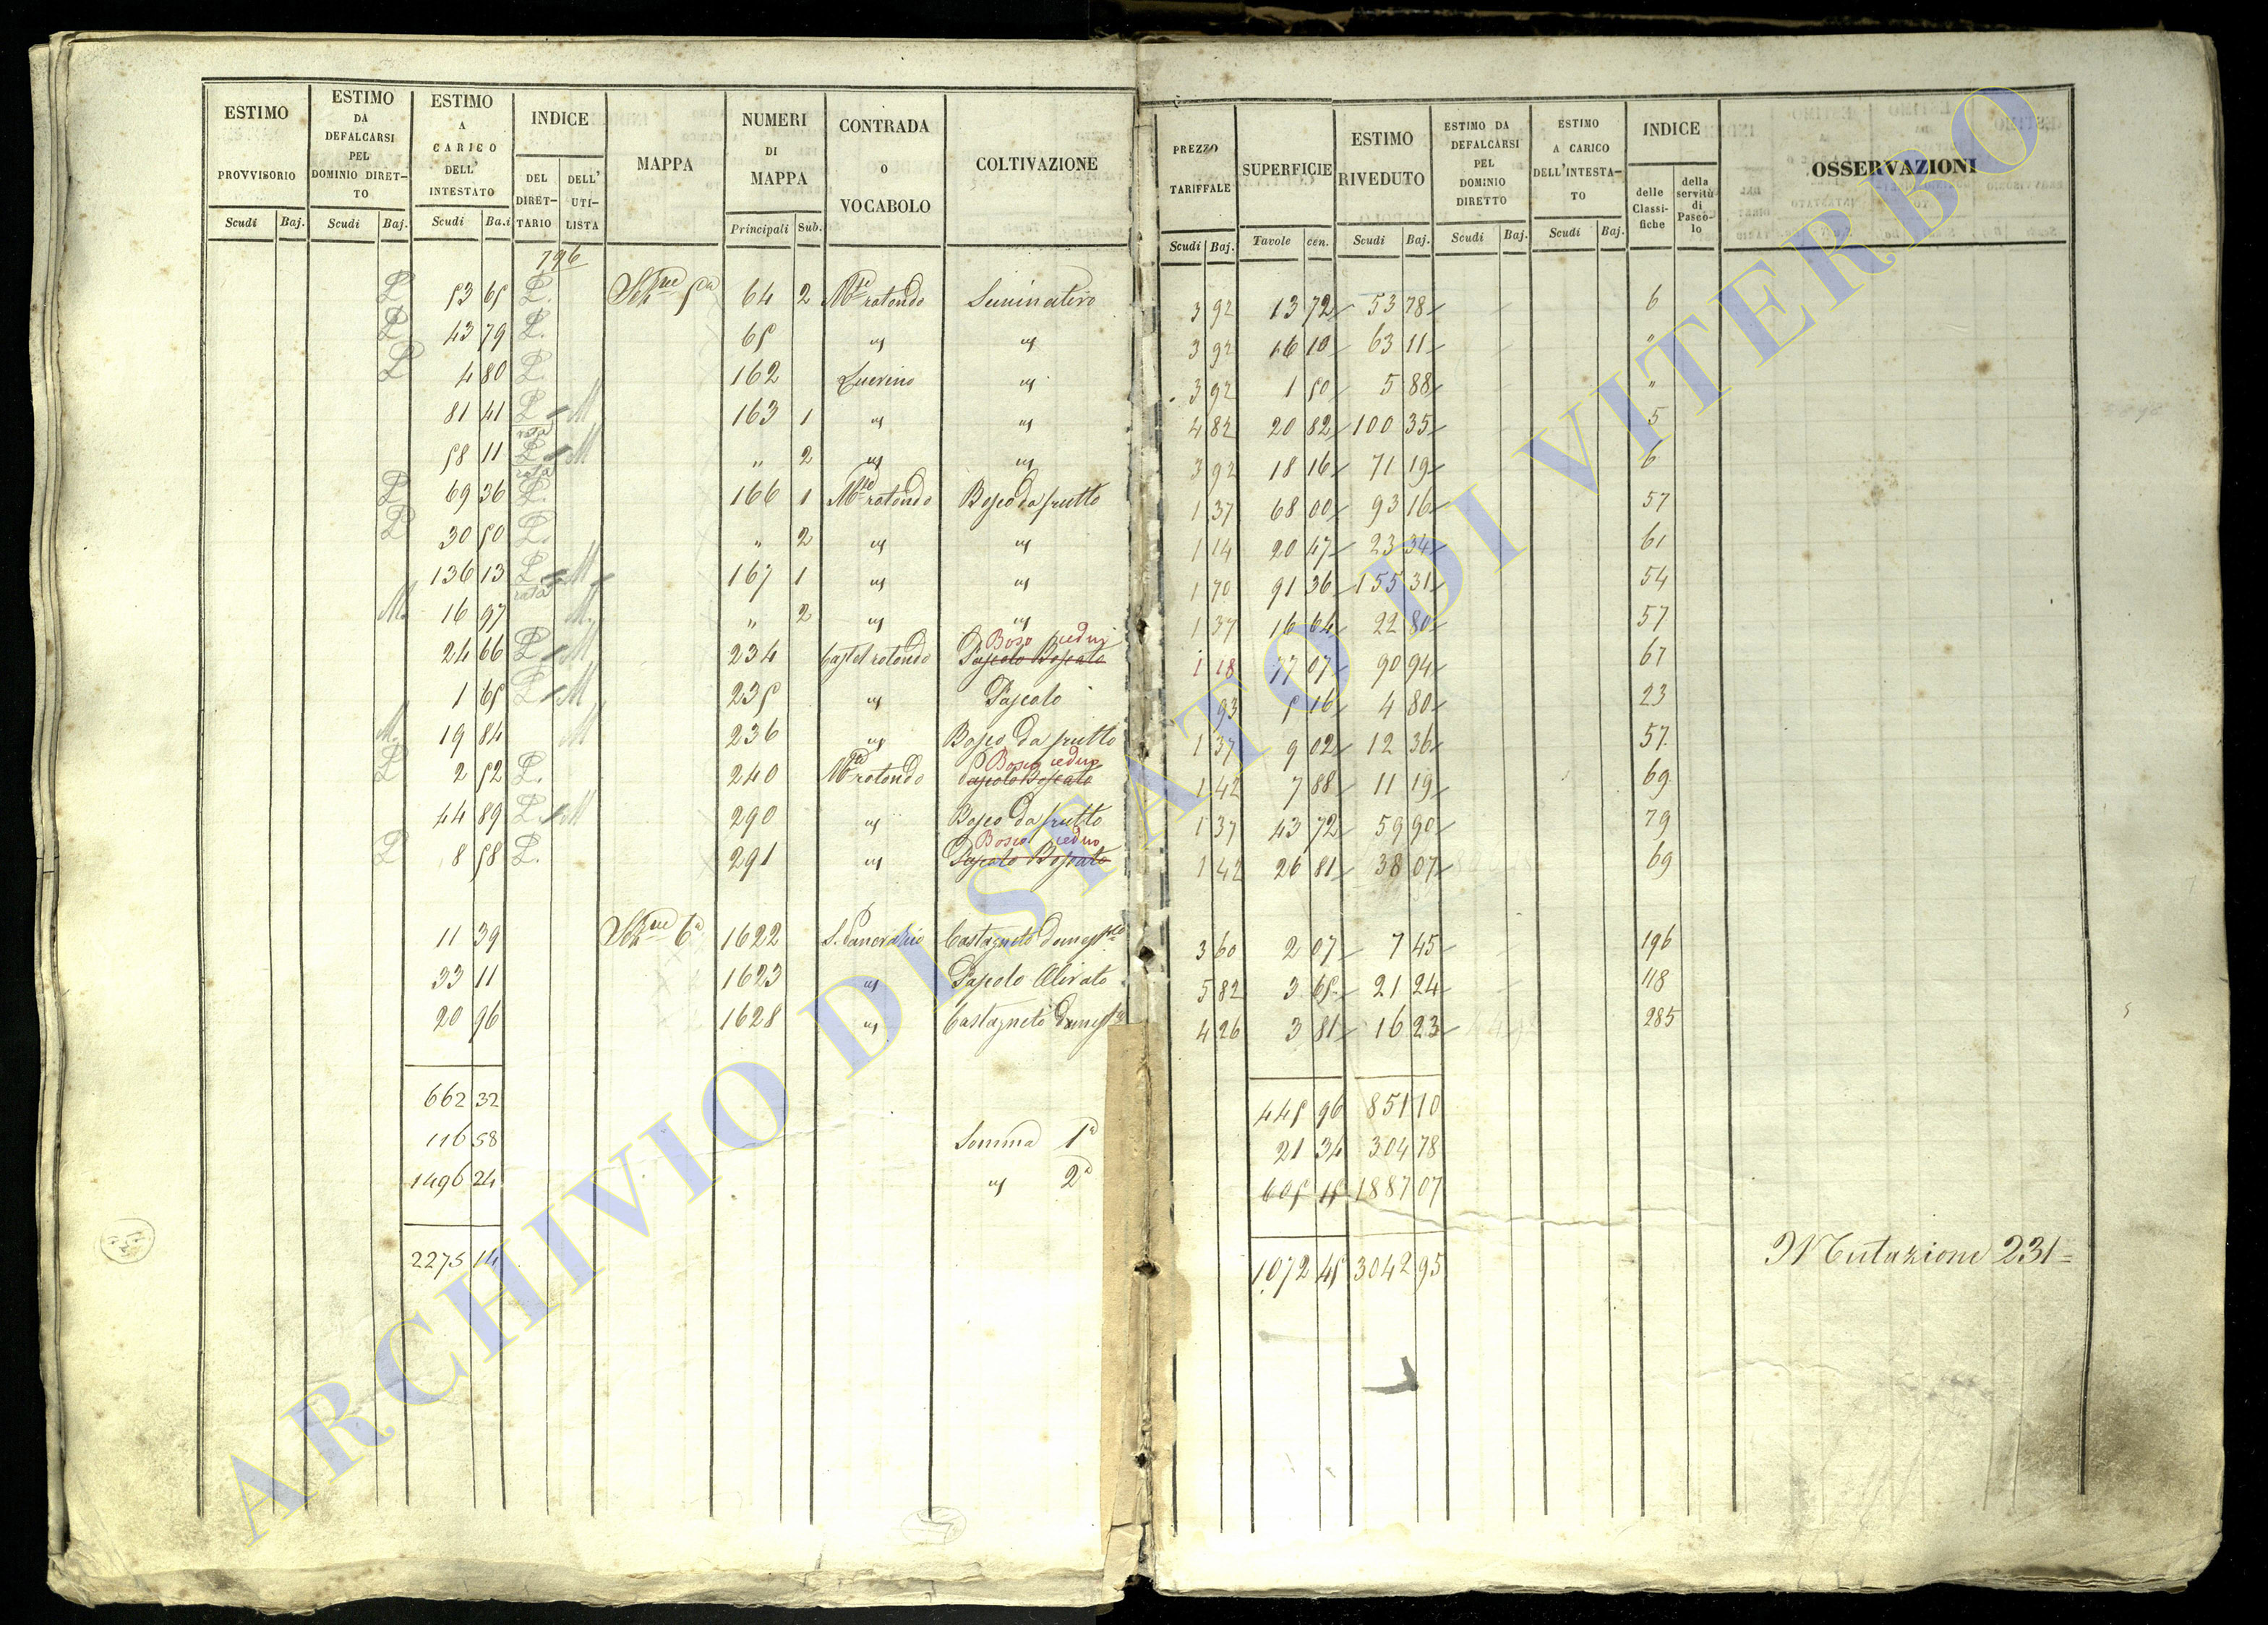 ESTIMO PROVVISORIO Scudi Baj.
ESTIMO DA DEFALCARSI PEL DOMINIO DIRET-TO Scudi Baj.
ESTIMO A CARICO DELL' INTESTATO Scudi Ba.i
INDICE DEL DIRET-TARIO DELL' UTI-LISTA
MAPPA
NUMERI DI MAPPA Principali Sub.
CONTRADA O VOCABOLO
COLTIVAZIONE
PREZZO TARIFFALE Scudi Baj.
SUPERFICIE Tavole cen.
ESTIMO RIVEDUTO Scudi Baj.
ESTIMO DA DEFALCARSI PEL DOMINIO DIRETTO Scudi Baj.
ESTIMO A CARICO DELL'INTESTA-TO Scudi Baj.
INDICE delle Classi-fiche della servitù di Pasco-lo
OSSERVAZIONI
796
53 65 64 2 M.te rotondo Seminativo 3 92 13 72 53 78 6
43 79 65 " " 3 92 16 10 63 11 "
4 80 162 Querino " 3 92 1 50 5 88 "
81 41 M 163 1 " " 4 82 20 82 100 35 5
58 11 M " 2 " " 3 92 18 16 71 19 6
69 36 166 1 M.te rotondo Bosco da frutto 1 37 68 00 93 16 57
30 50 " 2 " " 1 14 20 47 23 34 61
136 13 M 167 1 " " 1 70 91 36 155 31 54
M 16 97 M " 2 " " 1 37 16 64 22 80 57
24 66 M 234 Castel rotondo Pascolo Boscato Bosco ceduo 1 18 77 07 90 94 67
1 65 M 235 " Pascolo 93 5 16 4 80 23
M 19 84 M 236 " Bosco da frutto 1 37 9 02 12 36 57
2 52 240 M.te rotondo Pascolo Boscato Bosco ceduo 1 42 7 88 11 19 69
44 89 M 290 " Bosco da frutto 1 37 43 72 59 90 79
8 58 291 " Pascolo Boscato Bosco ceduo 1 42 26 81 38 07 69
11 39 6a 1622 S. Pancrazio Castagneto domest.co 3 60 2 07 7 45 196
33 11 1623 " Pascolo Olivato 5 82 3 65 21 24 118
20 96 1628 " Castagneto domest.co 4 26 3 81 16 23 285
662 32 445 96 851 10
116 58 Somma 1a 21 34 304 78
1496 24 " 2a 605 15 1887 07
2275 14 1072 45 3042 95
Mutazione 231=
ARCHIVIO DI STATO DI VITERBO